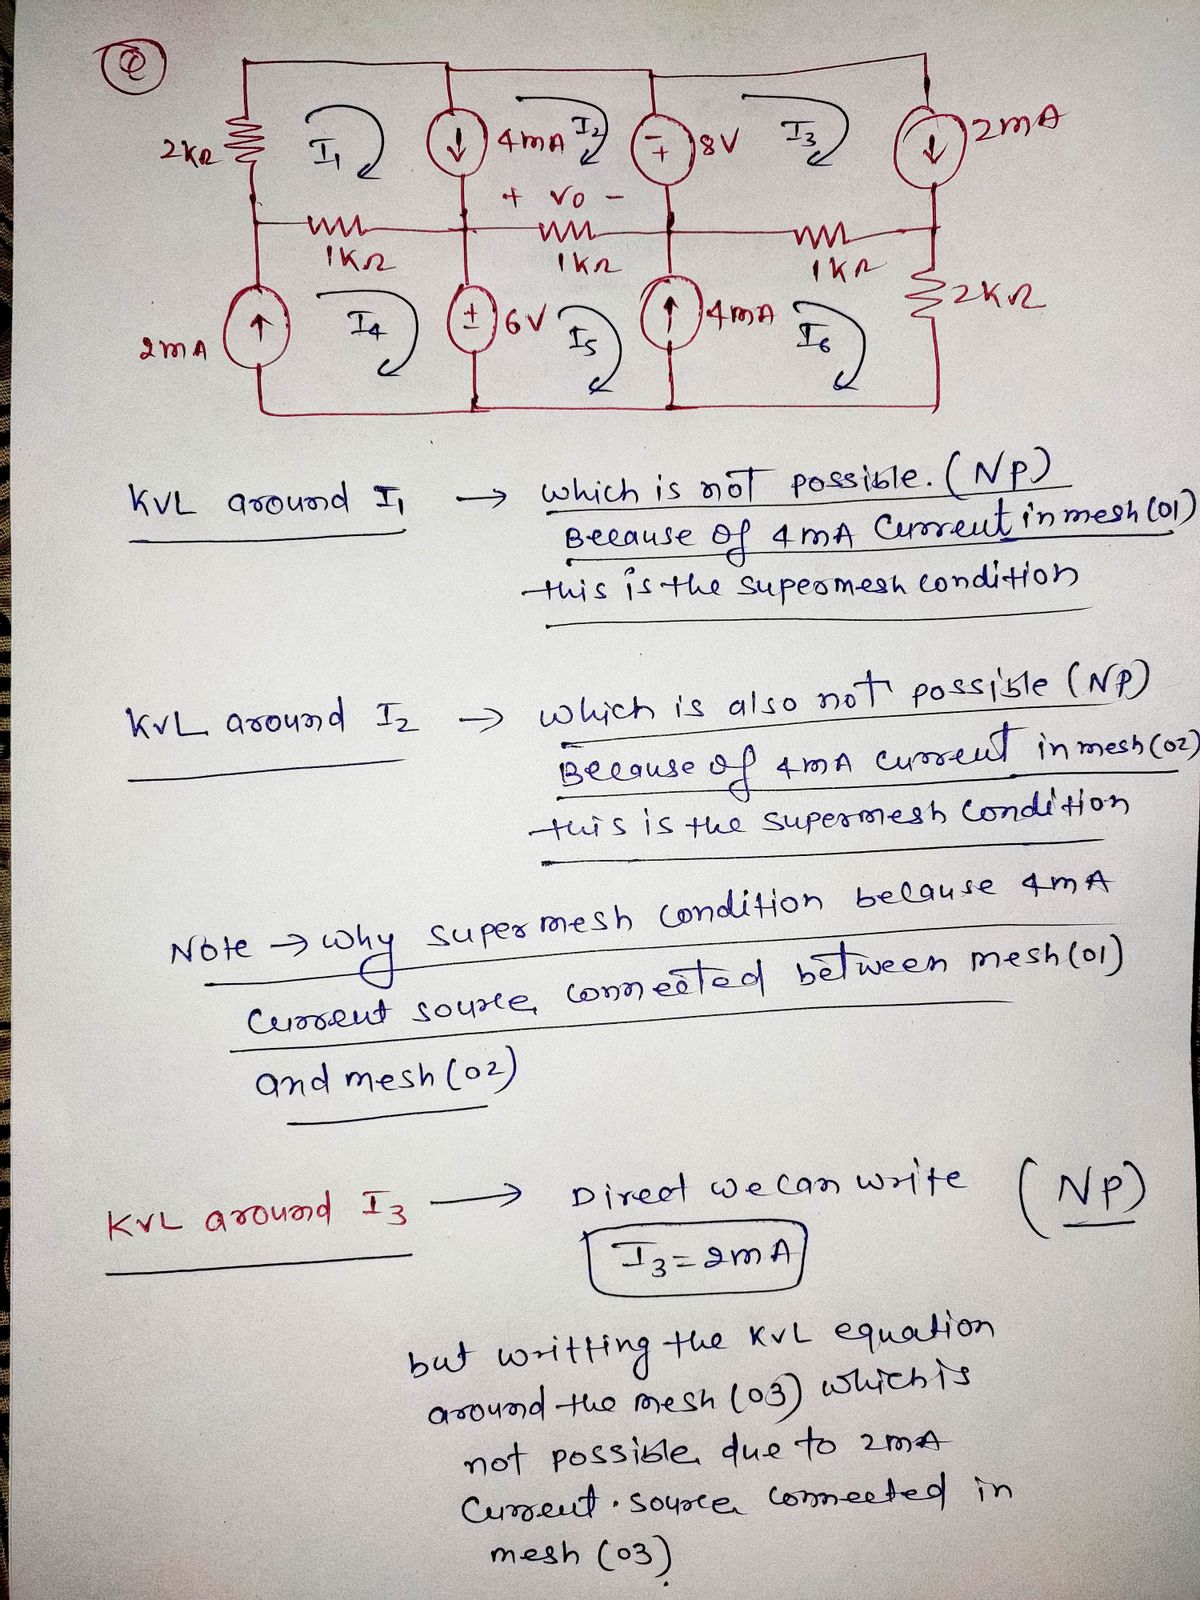 Q
2KΩ
I1
4mA
I2
8V
I3
2mA
+ vo -
1KΩ
1KΩ
1KΩ
2mA
I4
6V
I5
4mA
I6
2KΩ
KVL around I1 → which is not possible. (NP)
Because of 4mA Current in mesh (01)
this is the supermesh condition
KVL around I2 → which is also not possible (NP)
Because of 4mA current in mesh (02)
this is the supermesh condition
Note → why supermesh condition because 4mA
Current source connected between mesh (01)
and mesh (02)
KVL around I3 → Direct we can write (NP)
I3 = 2mA
but writting the KVL equation
around the mesh (03) which is
not possible due to 2mA
Current source connected in
mesh (03).